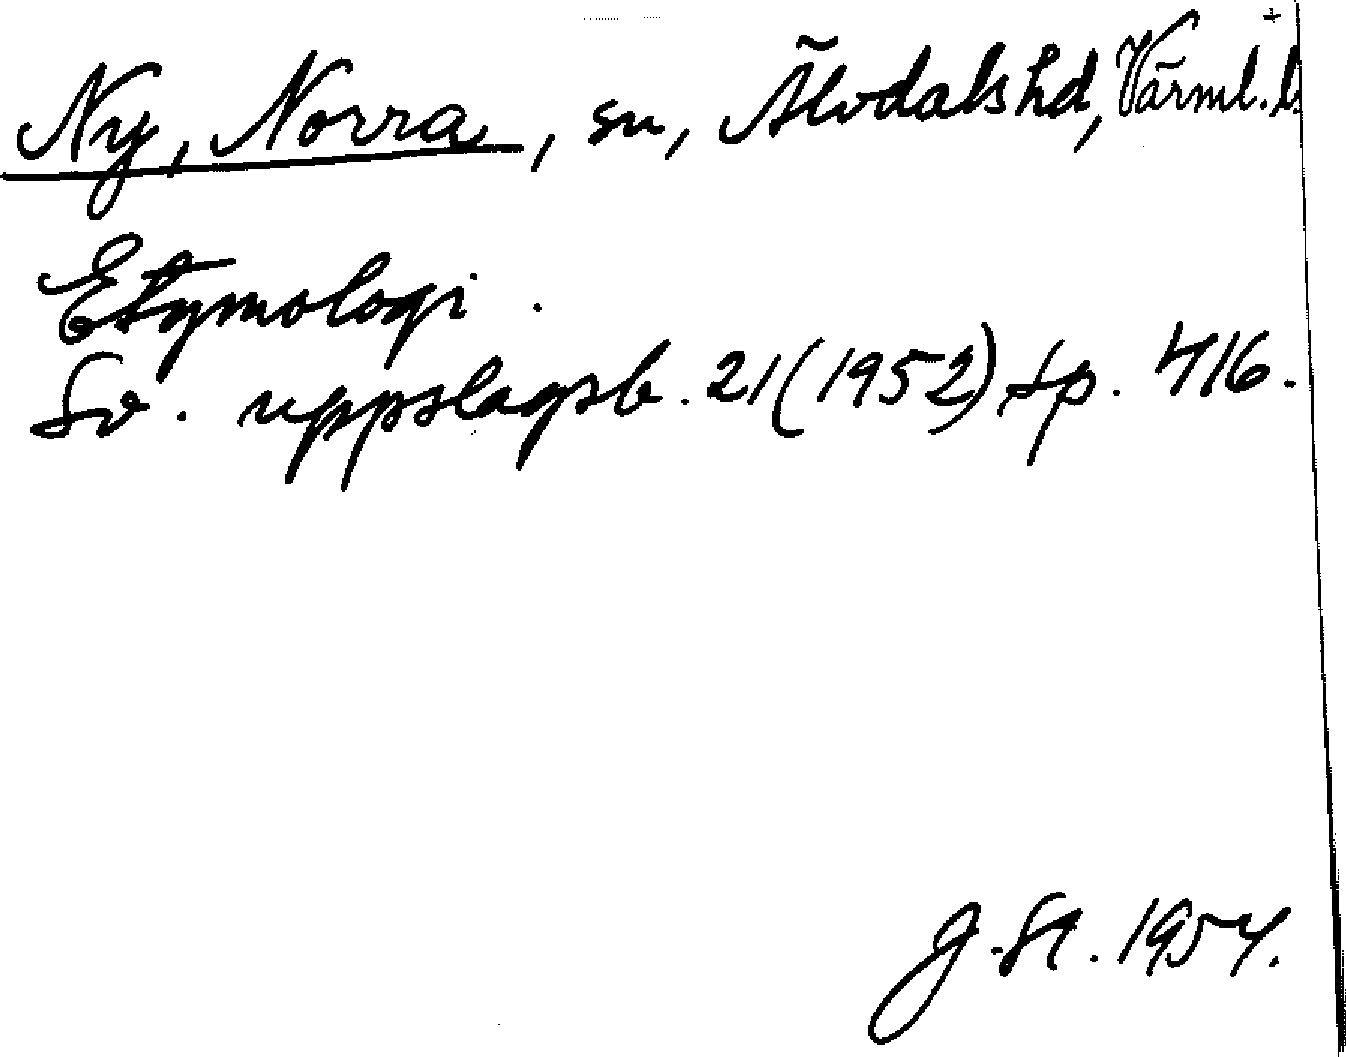 Ny, Norra, sn, Älvdals hd, Värml. l.
Etymologi.
Sv. uppslagsb. 21 (1952) sp. 416.
J. Sl. 1954.